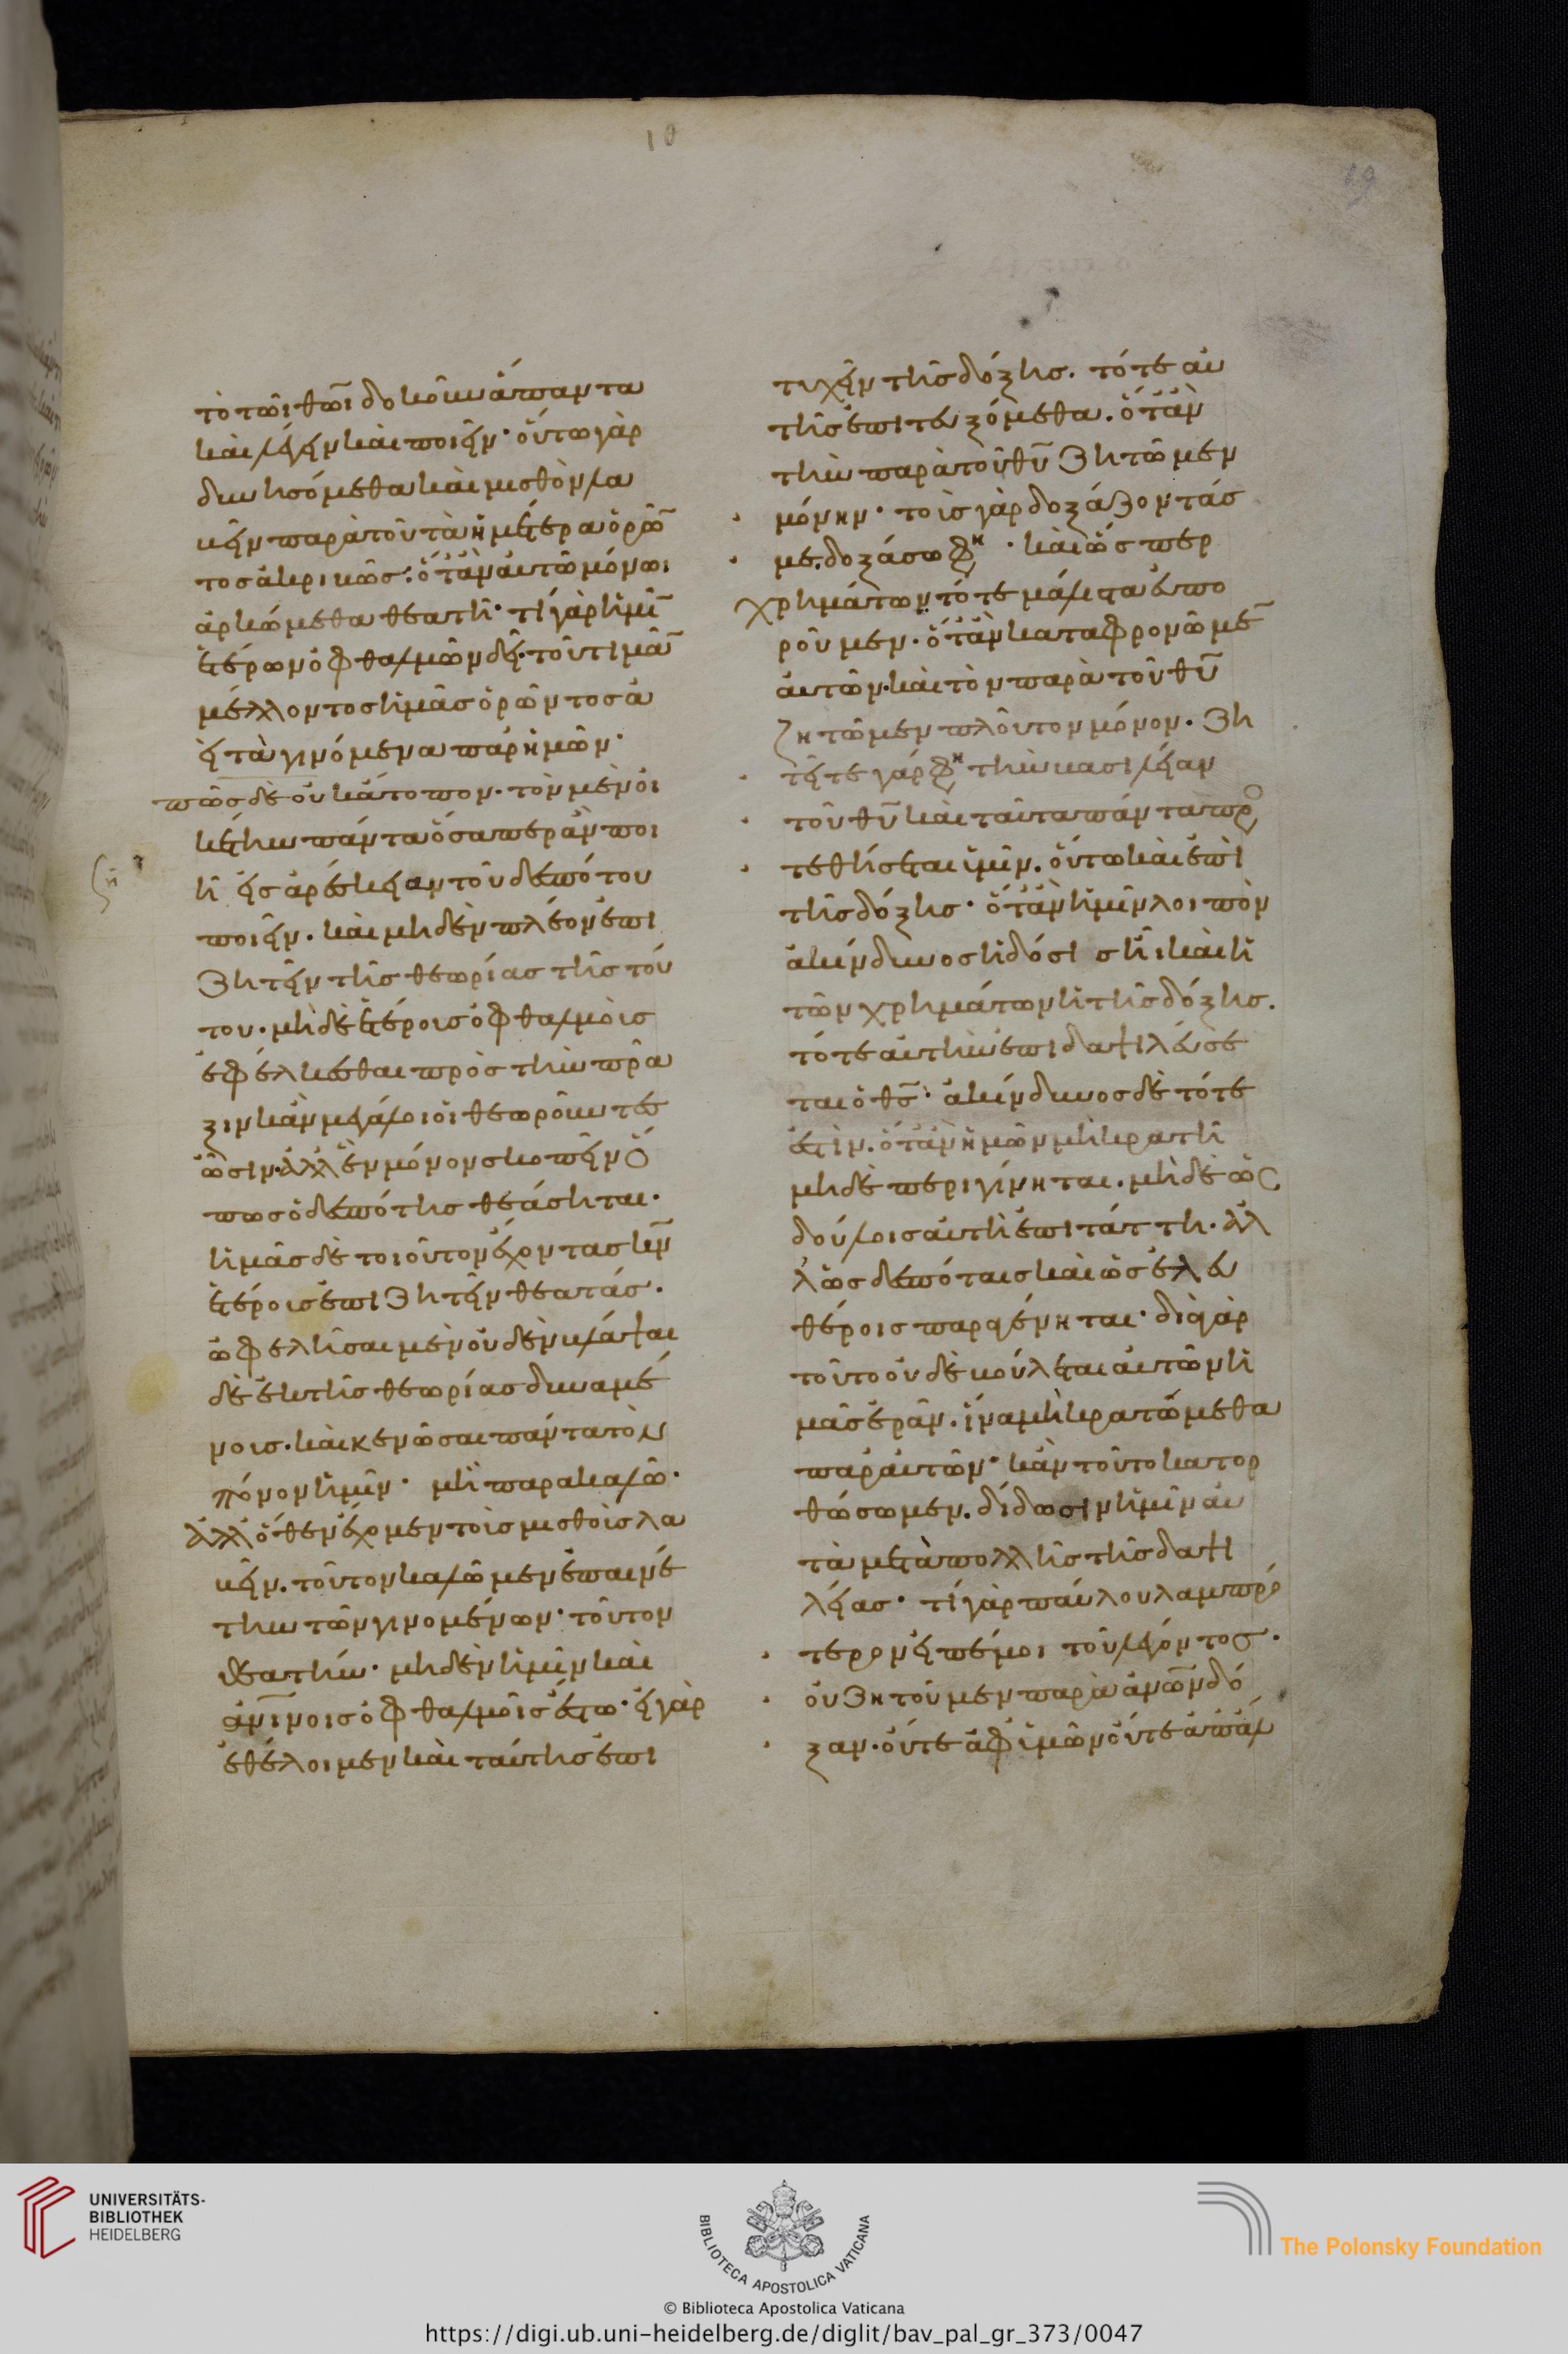 10
19
τὸ τῶι θῶι δοκοῦν ἅπαντα
καὶ λέγειν καὶ ποιεῖν· οὕτω γὰρ
δυνησόμεθα καὶ μισθὸν λα
βεῖν παρὰ τοῦ τὰ ἡμέτερα ὁρῶ̅
τος ἀκριβῶς· ὅτὰν αὐτῶ μόνωι
ἀρκώμεθα θεατῆ· τί γὰρ ἡμῖ̅
ἑτέρων ὀφθαλμῶν δεῖ· τοῦ τιμᾶ̅
μέλλοντος ἡμᾶς ὁρῶντος ἀ
εὶ τὰ γινόμενα παρ' ἡμῶν·
πῶς δὲ οὐκ ἄτοπον· τὸν μὲν οἰ
κέτην πάντα ὅσαπερ ἂν ποι
ῆ εἰς ἀρέσκειαν τοῦ δεσπότου
ποιεῖν· καὶ μηδὲν πλέον ἐπι
ζητεῖν τῆς θεωρίας τῆς τού
του· μηδὲ ἑτέροις ὀφθαλμοῖς
ἐφέλκεσθαι πρὸς τὴν πρᾶ
ξιν κἂν μεγάλοι οἱ θεωροῦντες
ὦσιν· ἀλλ' ἓν μόνον σκοπεῖν ὅ
πως ὁ δεσπότης θεάσηται·
ἡμᾶς δὲ τοιοῦτον ἔχοντας κν̅
ἑτέροις ἐπιζητεῖν θεατάς·
ὠφελῆσαι μὲν οὐδὲν βλάψαι
δὲ ἐκ τῆς θεωρίας δυναμέ
νοις· καὶ κενῶσαι πάντα τὸν
πόνον ἡμῖν· μὴ παρακαλῶ·
ἀλλ' ὅθεν ἔχομεν τοὺς μισθοὺς λα
βεῖν· τοῦτον καλῶμεν ἐπαινέ
την τῶν γινομένων· τοῦτον
θεατήν· μηδὲν ἡμῖν καὶ
ἀν̅ίνοις ὀφθαλμοῖς ἔστω· εἰ γὰρ
ἐθέλοιμεν καὶ ταύτης ἐπι
τυχεῖν τῆς δόξης· τότε αὐ
τῆς ἐπιτευξόμεθα· ὅτὰν
τὴν παρὰ τοῦ θυ̅ ζητῶμεν
μόνην· τοὺς γὰρ δοξάζοντάς
με· δοξάσω φη · καὶ ὥσπερ
χρημάτων τότε μάλιστα εὐπο
ροῦμεν· ὅτὰν καταφρονῶμε̅
αὐτῶν· καὶ τὸν παρὰ τοῦ θυ̅
ζητῶμεν πλοῦτον μόνον· ζη
τεῖτε γάρ φη τὴν βασιλείαν
τοῦ θυ̅ καὶ ταῦτα πάντα προ
τεθήσεται ὑμῖν· οὕτω καὶ ἐπὶ
τῆς δόξης· ὅτὰν ἡμῖν λοιπὸν
ἀκίνδυνος ἡ δόσις ἦι καὶ ἡ
τῶν χρημάτων ἢ τῆς δόξης·
τότε αὐτὴν ἐπιδαψιλεύσε
ται ὁ θς̅· ἀκίνδυνος δὲ τότε
ἐστὶν· ὅτὰν ἡμῶν μὴ κρατῆ
μηδὲ περιγίνηται· μηδὲ ὡς
δούλοις αὐτὴ ἐπιτάττη· ἀλ
λ' ὡς δεσπόταις καὶ ὡς ἐλευ
θέροις παραγένηται· διὰ γὰρ
τοῦτο οὐδὲ βούλεται αὐτῶν ἡ
μᾶς ἐρᾶν· ἵνα μὴ κρατώμεθα
παρ' αὐτῶν· κἂν τοῦτο κατορ
θώσωμεν· δίδωσιν ἡμῖν αὐ
τὰ μετὰ πολλῆς τῆς δαψι
λείας· τί γὰρ παύλου λαμπρό
τερον εἰπέ μοι τοῦ λέγοντος·
οὐ ζητοῦμεν παρὰ ἀνῶν̅ δό
ξαν· οὔτε ἀφ' ὑμῶν οὔτε ἀπ' ἄλ
UNIVERSITÄTS-
BIBLIOTHEK
HEIDELBERG
BIBLIOTECA APOSTOLICA VATICANA
The Polonsky Foundation
© Biblioteca Apostolica Vaticana
https://digi.ub.uni-heidelberg.de/diglit/bav_pal_gr_373/0047